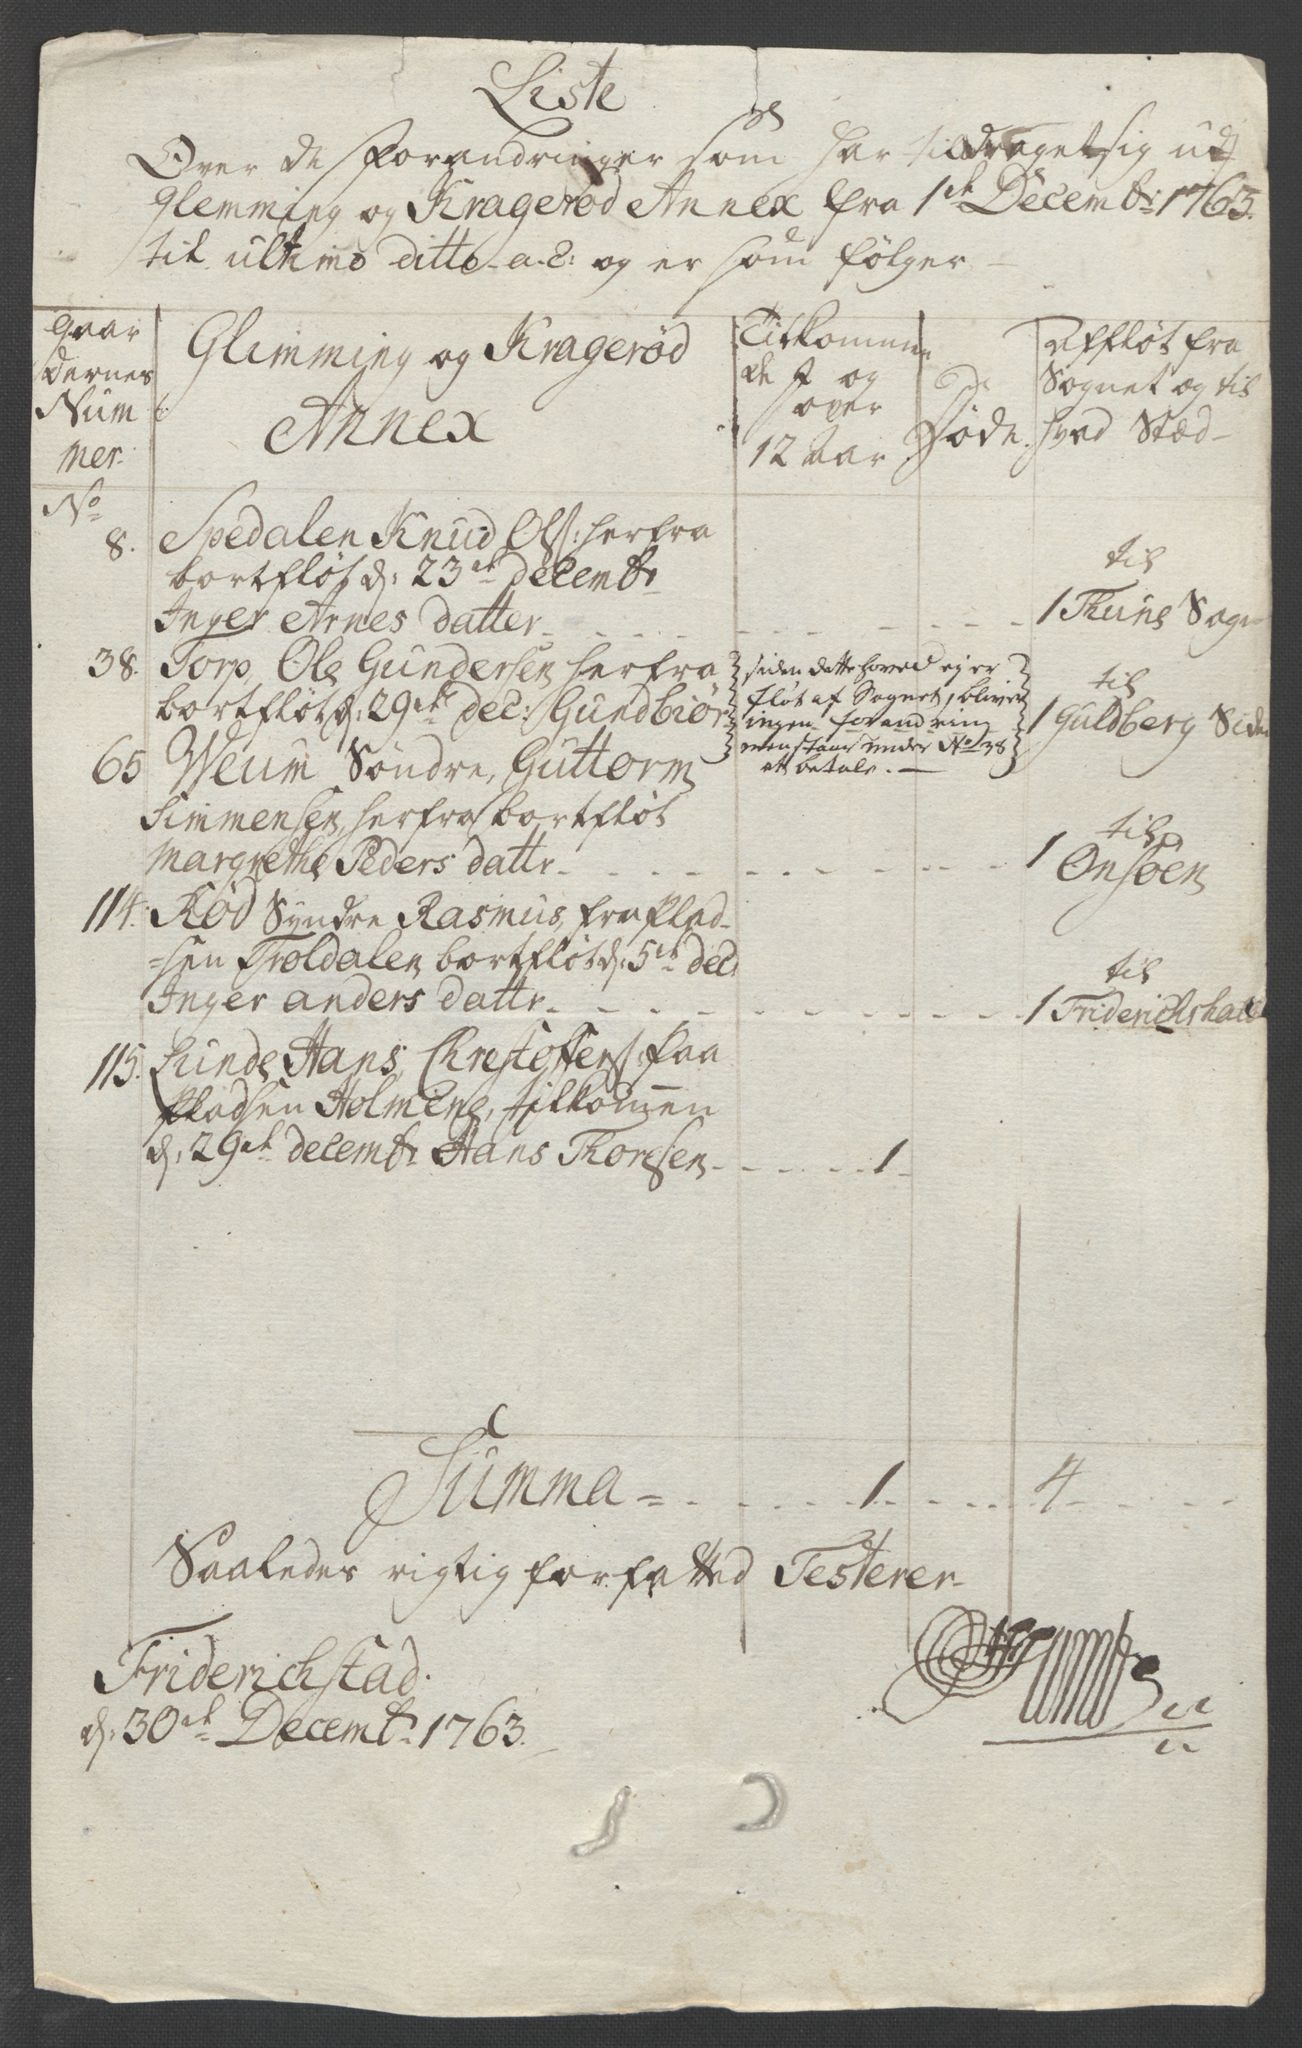 Liste
Over de forandringer som har tildraget sig udj
Glemming og Kragerød Annex fra 1ste Decembr: 1763.
til ultimo ditto a: c: og er som følger
Gaar
dernes
Num
mer.
Glimming og Kragerød
Annex
Tilkomne
de og
over
12 Aar
Døde.
Affløt fra
Sognet og til
hvad Stæd
No
8. Spedalen Knud Ols: herfra
bortfløt d: 23de decembr
Inger Arnes datter
til
1 Thune Sogn
38. Torp, Ole Gundersen herfra
bortfløt d: 29de dec: Gundbiør
siden dette hoved ej er
fløt af Sognet, bliver
ingen forandring
men staar under No 38
at betale.
til
1 Guldberg Siden
65 Weum Søndre, Guttorm
Simmensen, herfra bortfløt
Margrethe Peders dattr
til
1 Onsøen
114. Rød Syndre Rasmus, fra Plad-
=sen Troldalen bortfløt d: 5te dec
Inger anders dattr
til
1 Friderichshald
115. Lunde Hans Chrestoffers: paa
Pladsen Holmene, tilkommen
d: 29de decembr Hans Thoresen 1
Summa = 1 4
Saaledes rigtig forfatted Testerer
Friderichstad.
d: 30te Decembr 1763.